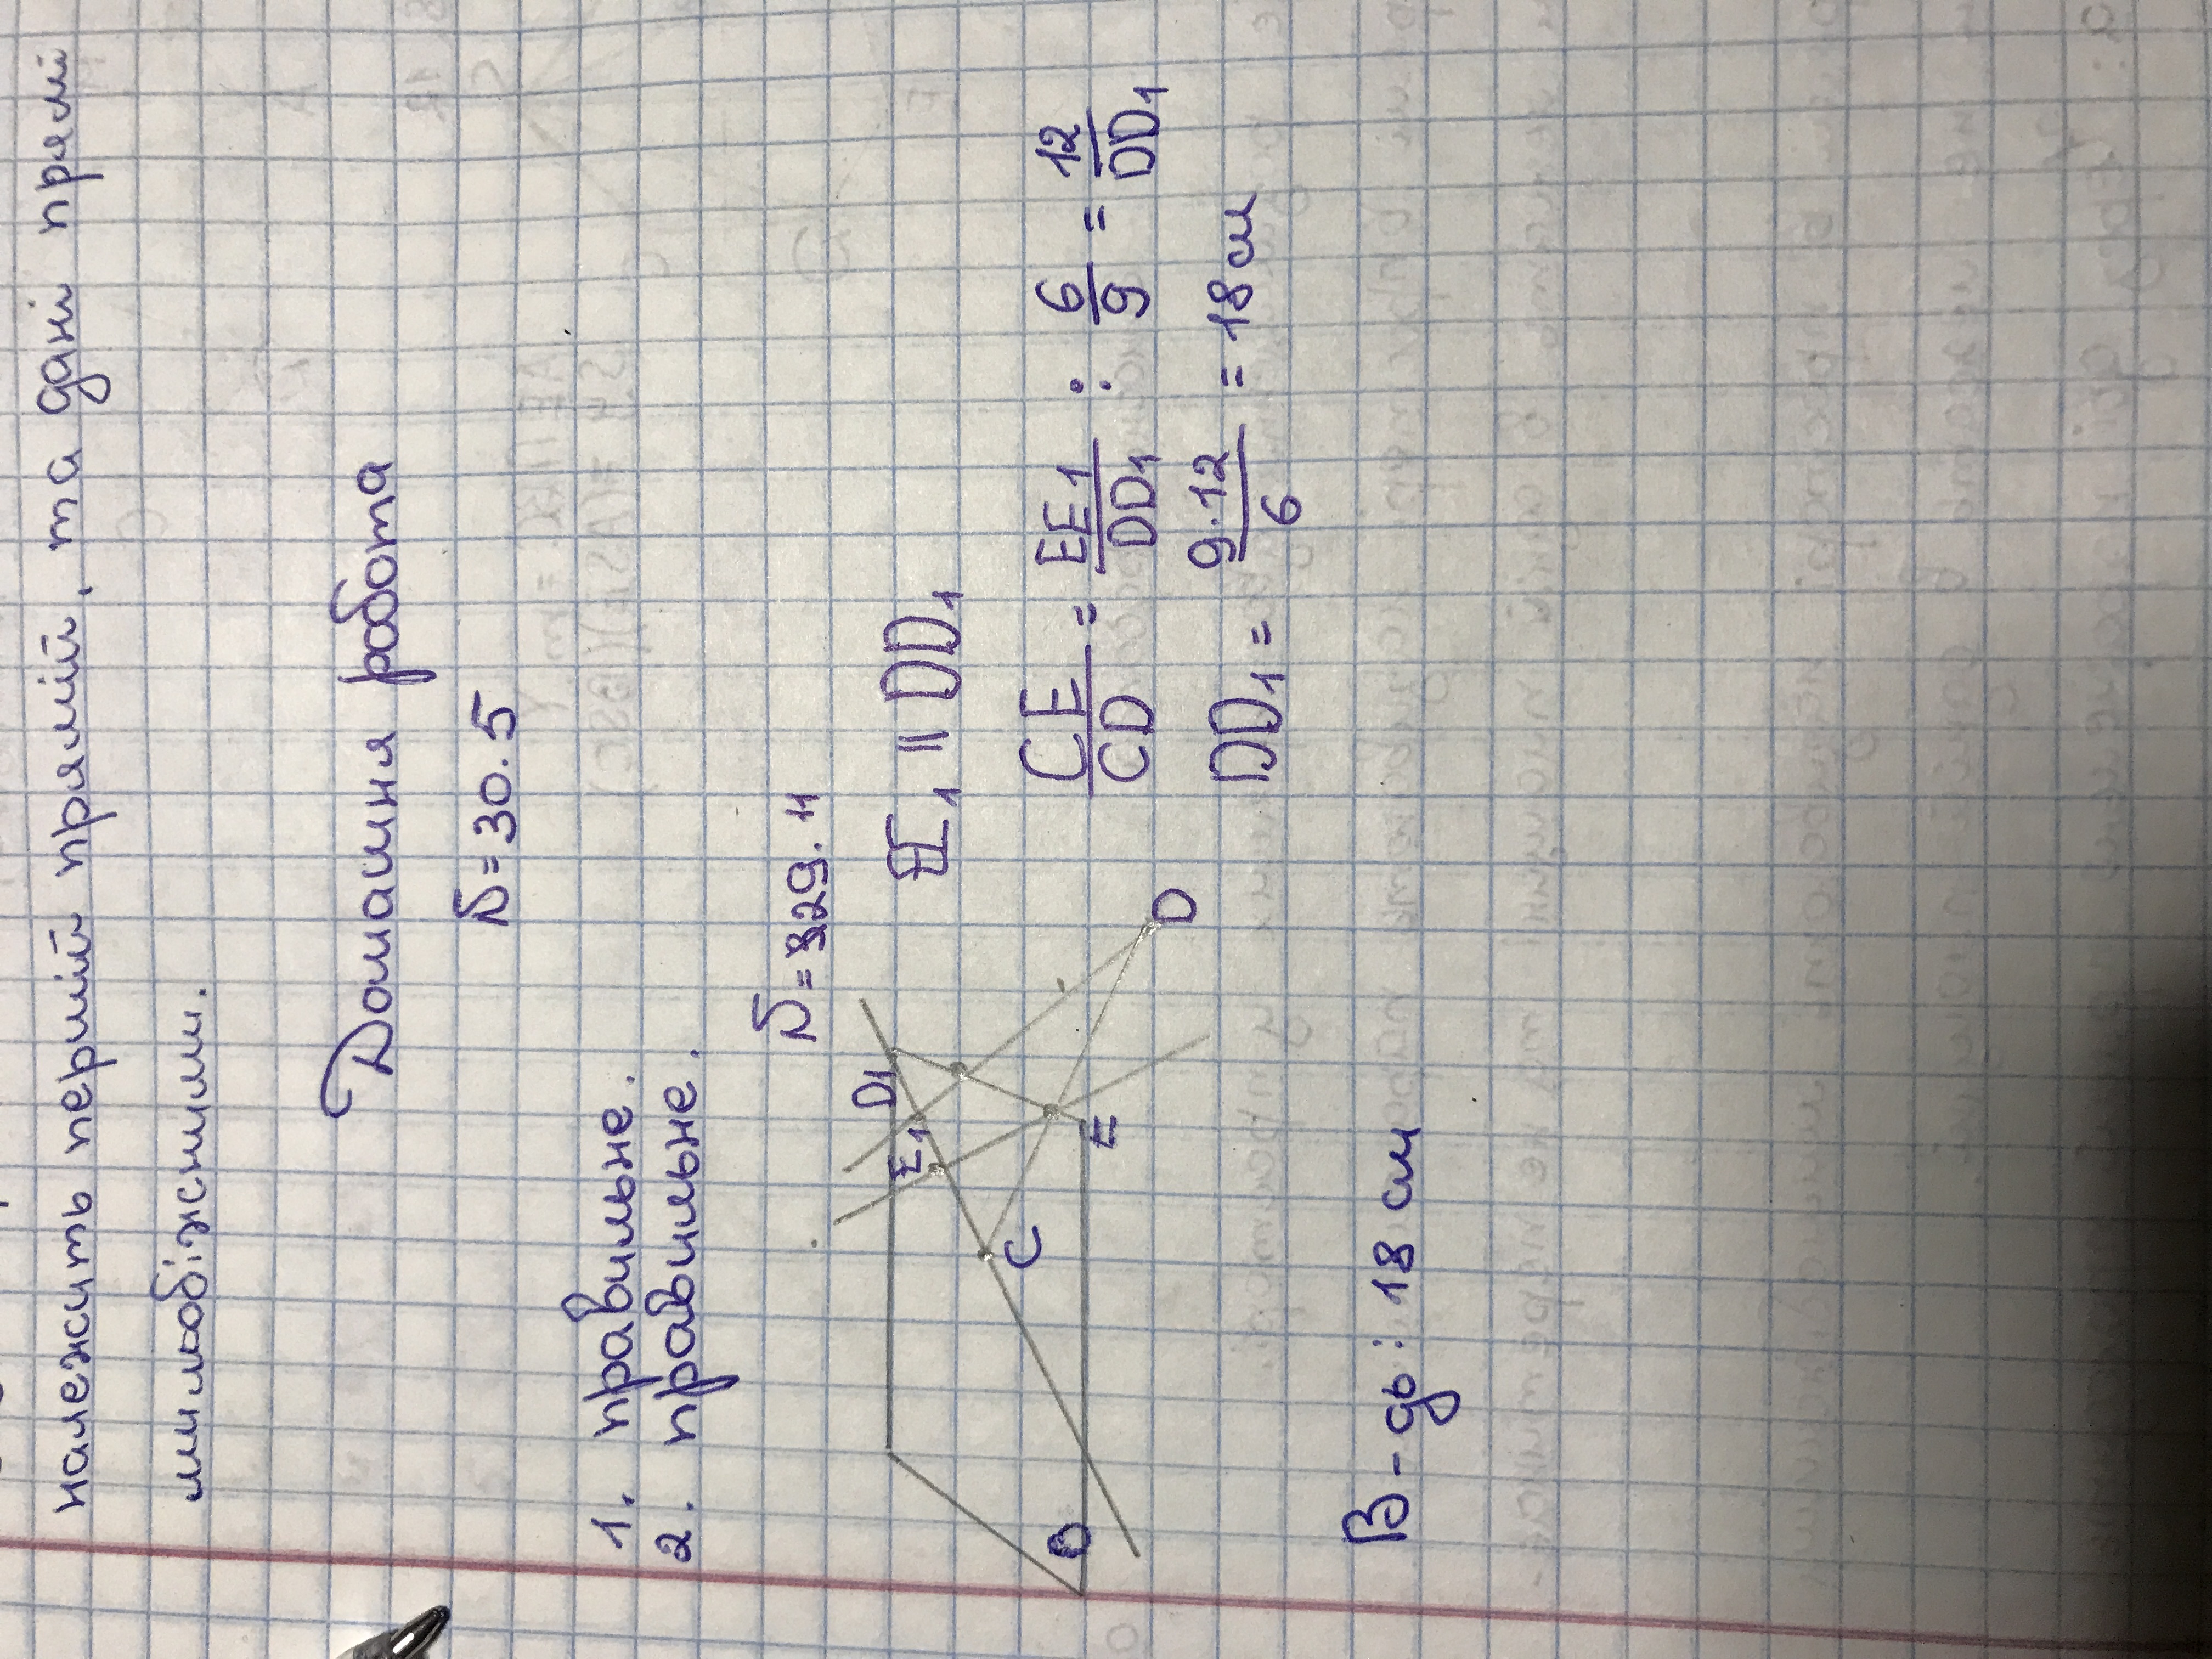 належить першій прямій, та дані прямі
мимобіжними.
Домашня робота
№ 30.5
1. правильне.
2. правильне.
№ 329.11
EE₁ || DD₁
CE/CD = EE₁/DD₁ ; 6/9 = 12/DD₁
DD₁ = 9·12/6 = 18 см
D₁
E₁
C
E
D
В-дь: 18 см